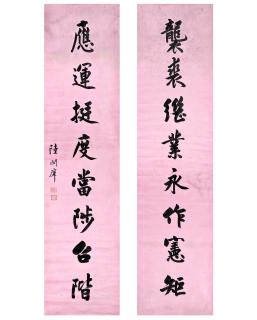 襲裘继業永作憲矩
應運挺度當陟台階
陸润庠